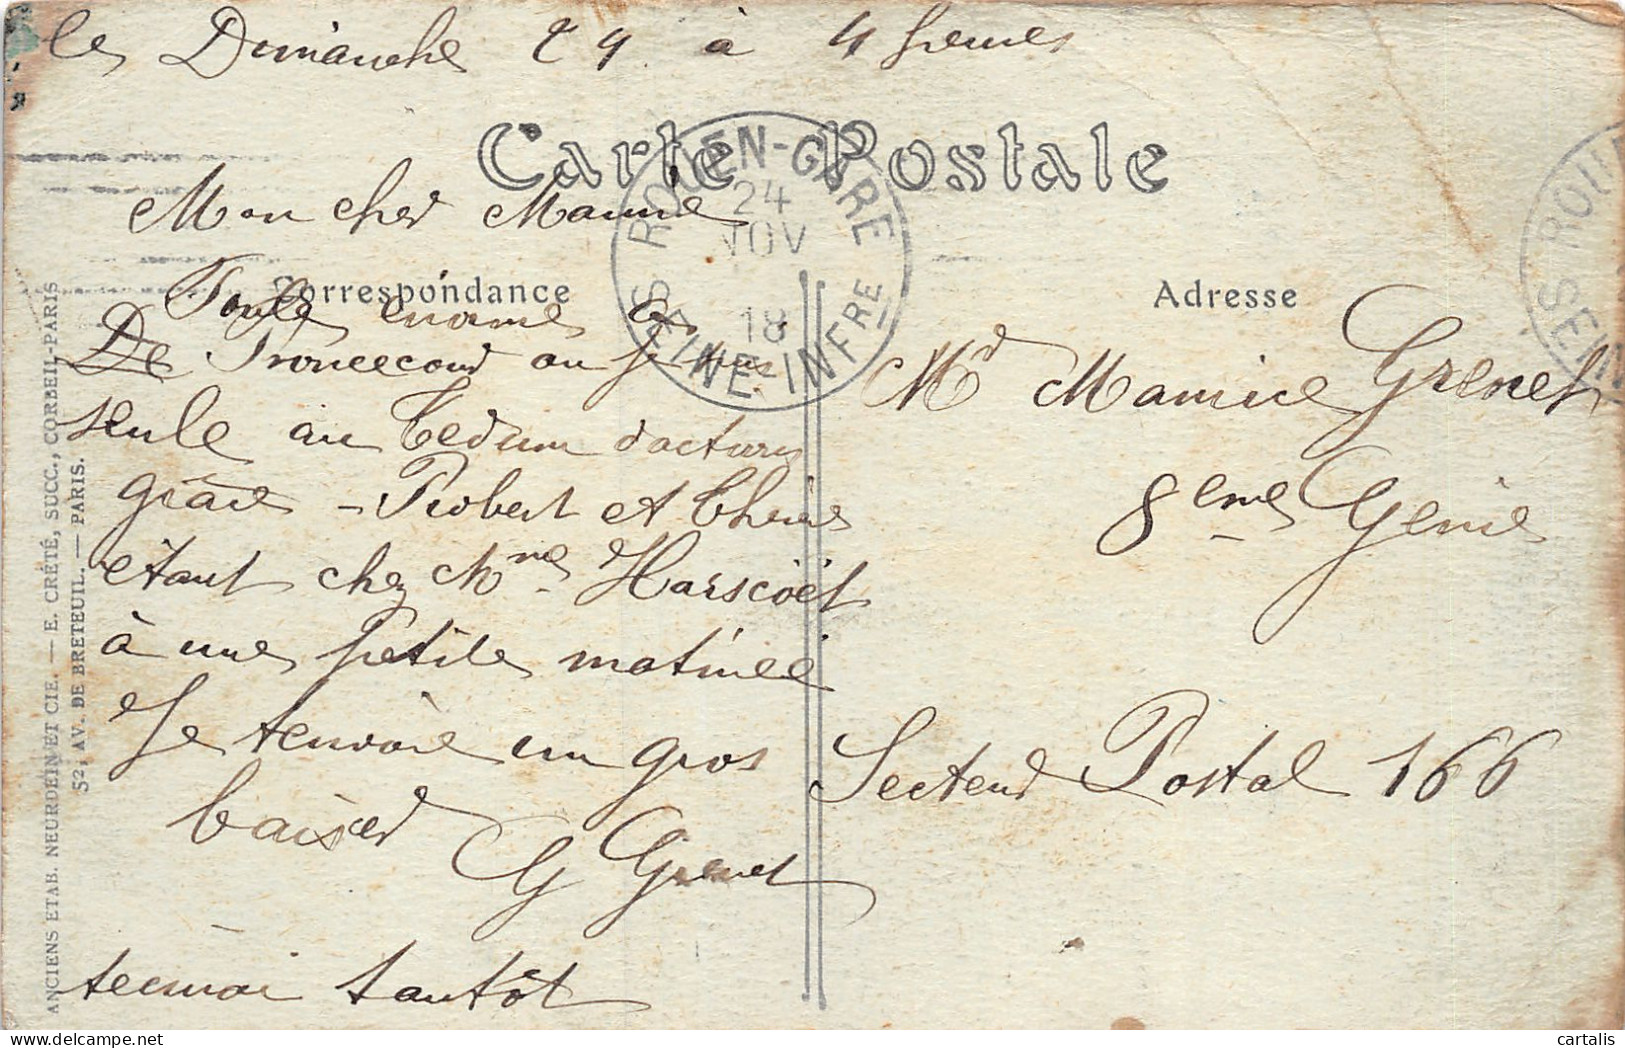 le Dimanche 24 à 4 heures
Carte Postale
ROUEN-GARE
24
NOV
18
SEINE-INFRE
Mon cher Maurice
Correspondance
Foule enorme
De Troncecour ou Je suis
seule au Tedeum d'actions
grace - Robert et Thérèse
etant chez Mme Harscoët
à une petite matinée
Je t'envoie un gros
baiser G Grenet
tantôt
Adresse
Mr Maurice Grenet
8eme Genie
Secteur Postal 166
ROU
SEIN
ANCIENS ETAB. NEURDEIN ET CIE. — E. CRÉTÉ, SUCC., CORBEIL-PARIS
52, AV. DE BRETEUIL. — PARIS.
cartalis
delcampe.net